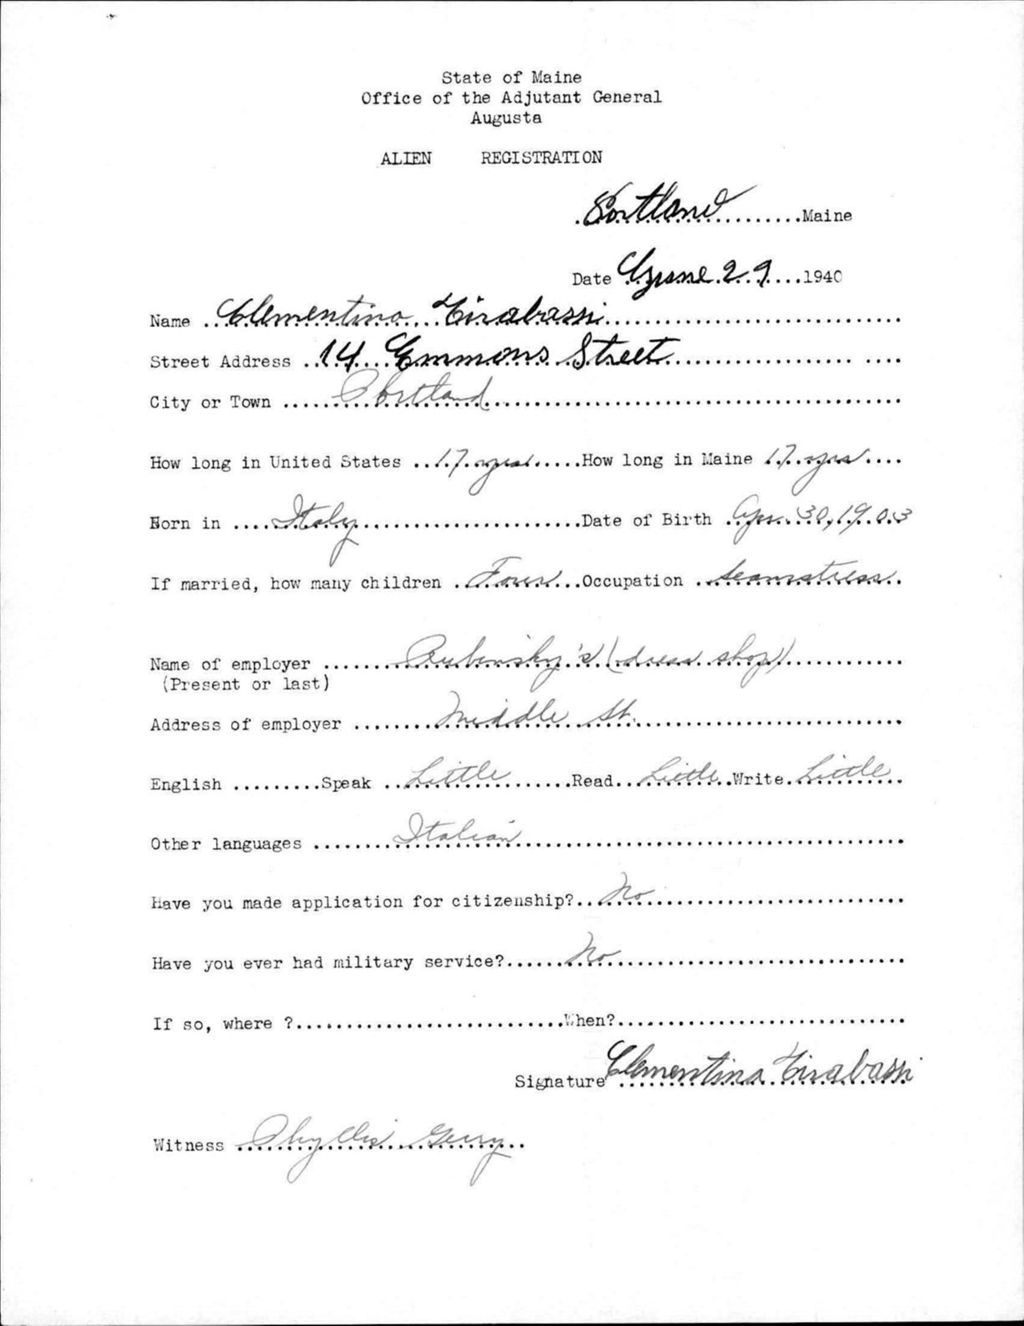 State of Maine
Office of the Adjutant General
Augusta
ALIEN REGISTRATION
Portland Maine
Date June 29 1940
Name Clementina Tirabassi
Street Address 14 Emmons Street
City or Town Portland
How long in United States 17 years How long in Maine 17 yrs
Born in Italy Date of Birth Apr. 30, 1903
If married, how many children Four Occupation seamstress
Name of employer Rubinsky's (dress shop)
(Present or last)
Address of employer Middle St.
English Speak Little Read Little Write Little
Other languages Italian
Have you made application for citizenship? No
Have you ever had military service? No
If so, where ? When?
Signature Clementina Tirabassi
Witness Phyllis Gerry